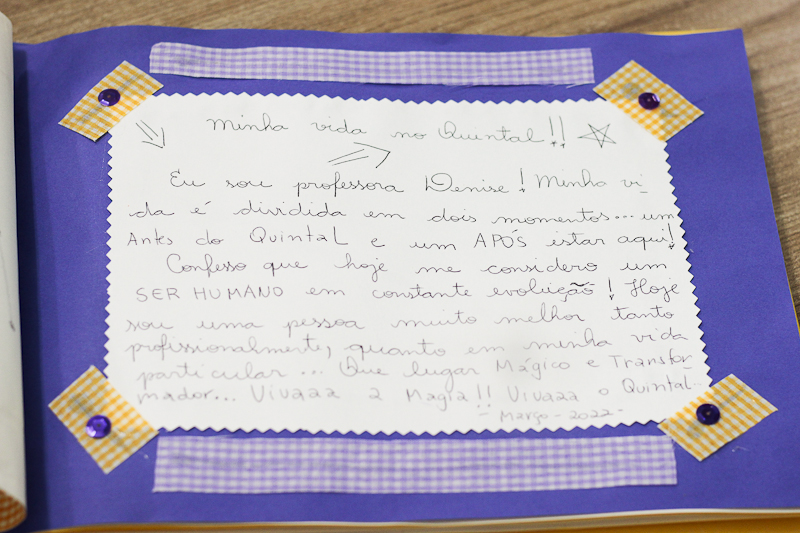 Minha vida no Quintal!!
Eu sou professora Denise! Minha vi-
da é dividida em dois momentos... um
Antes do Quintal e um APÓS estar aqui!
Confesso que hoje me considero um
SER HUMANO em constante evolução! Hoje
sou uma pessoa muito melhor tanto
profissionalmente, quanto em minha vida
particular... Que lugar Mágico e Transfor-
mador... Vivaaa a Magia!! Vivaaa o Quintal..
- Março - 2022 -